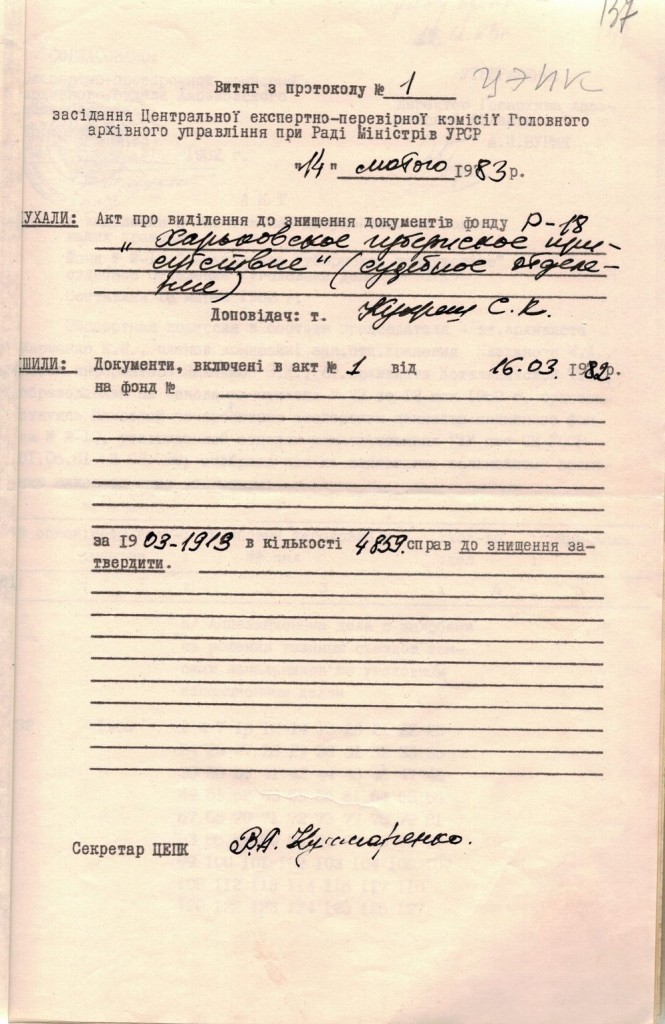 137
Витяг з протоколу № 1 ЦЭПК
засідання Центральної експертно-перевірної комісії Головного
архівного управління при Раді Міністрів УРСР
"14" лютого 1983 р.
УХАЛИ: Акт про виділення до знищення документів фонду Р-18
„Харьковское губернское при-
сутствие" (судебное отделе-
ние)
Доповідач: т. С.К.
ШИЛИ: Документи, включені в акт № 1 від 16.03. 1982р.
на фонд №
за 1903-1913 в кількості 4859 справ до знищення за-
твердити.
Секретар ЦЕПК В.А.